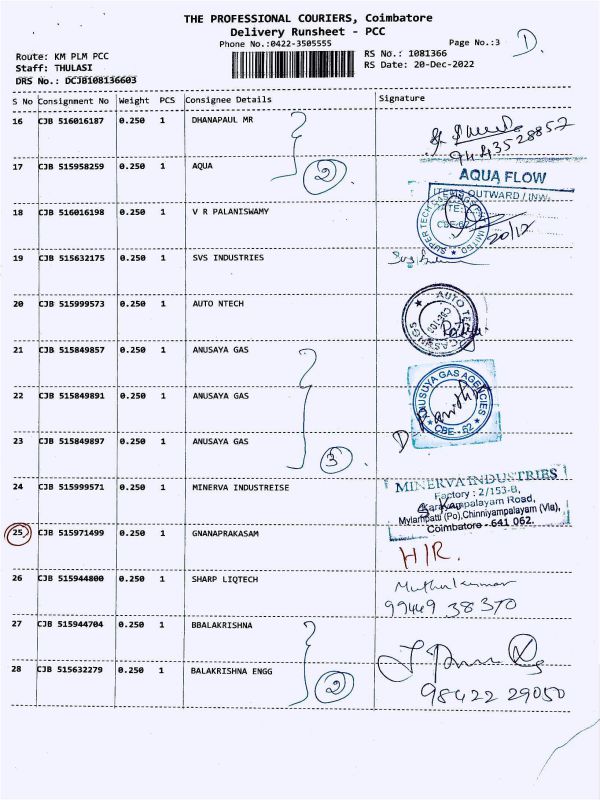 THE PROFESSIONAL COURIERS, Coimbatore
Delivery Runsheet - PCC
Phone No.:0422-3505555
Page No.:3 D.
Route: KM PLM PCC
RS No.: 1081366
Staff: THULASI
RS Date: 20-Dec-2022
DRS No.: DCJB108136603
S No Consignment No Weight PCS Consignee Details Signature
16 CJB 516016187 0.250 1 DHANAPAUL MR
9443528852
17 CJB 515958259 0.250 1 AQUA
2
AQUA FLOW
ITEMS OUTWARD / INW.
18 CJB 516016198 0.250 1 V R PALANISWAMY
20/12
19 CJB 515632175 0.250 1 SVS INDUSTRIES
20 CJB 515999573 0.250 1 AUTO NTECH
AUTO TEC
21 CJB 515849857 0.250 1 ANUSAYA GAS
22 CJB 515849891 0.250 1 ANUSAYA GAS
ANUSUYA GAS AGENCIES
CBE - 62
23 CJB 515849897 0.250 1 ANUSAYA GAS
3
24 CJB 515999571 0.250 1 MINERVA INDUSTREISE
MINERVA INDUSTRIES
Factory : 2/153-B,
Karayampalayam Road,
Mylampatti (Po),Chinniyampalayam (Via),
Coimbatore - 641 062.
25 CJB 515971499 0.250 1 GNANAPRAKASAM
H/R.
26 CJB 515944800 0.250 1 SHARP LIQTECH
Muthukumar
99449 38370
27 CJB 515944704 0.250 1 BBALAKRISHNA
28 CJB 515632279 0.250 1 BALAKRISHNA ENGG
2
98422 29050